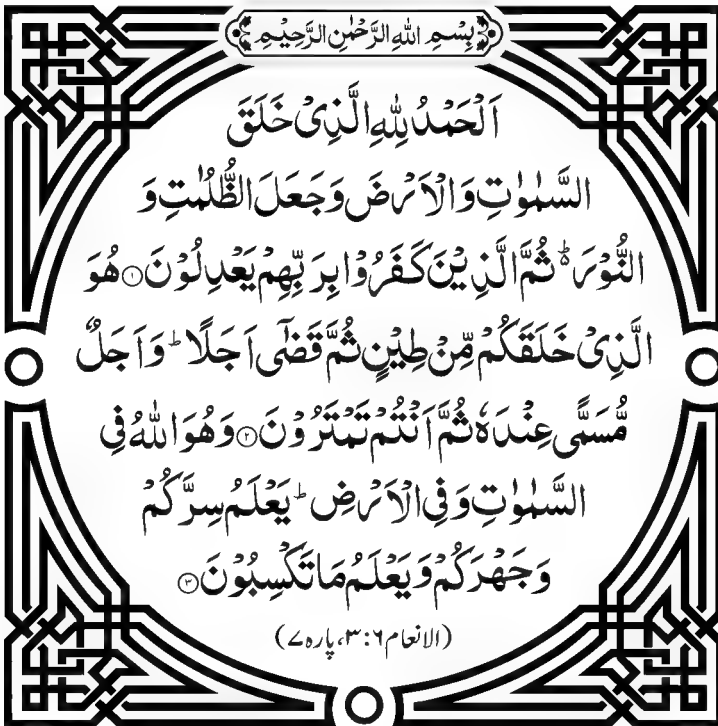 بِسْمِ اللهِ الرَّحْمٰنِ الرَّحِيْمِ
اَلْحَمْدُ لِلّٰهِ الَّذِىْ خَلَقَ
السَّمٰوٰتِ وَالْاَرْضَ وَجَعَلَ الظُّلُمٰتِ وَ
النُّوْرَ ؕ۬ ثُمَّ الَّذِيْنَ كَفَرُوْا بِرَبِّهِمْ يَعْدِلُوْنَ ۝۱ هُوَ
الَّذِىْ خَلَقَكُمْ مِّنْ طِيْنٍ ثُمَّ قَضٰۤى اَجَلًا ؕ وَاَجَلٌ
مُّسَمًّى عِنْدَهٗ ثُمَّ اَنْتُمْ تَمْتَرُوْنَ ۝۲ وَهُوَ اللهُ فِى
السَّمٰوٰتِ وَفِى الْاَرْضِ ؕ يَعْلَمُ سِرَّكُمْ
وَجَهْرَكُمْ وَيَعْلَمُ مَا تَكْسِبُوْنَ ۝۳
(الانعام ۶:۳، پارہ ۷)